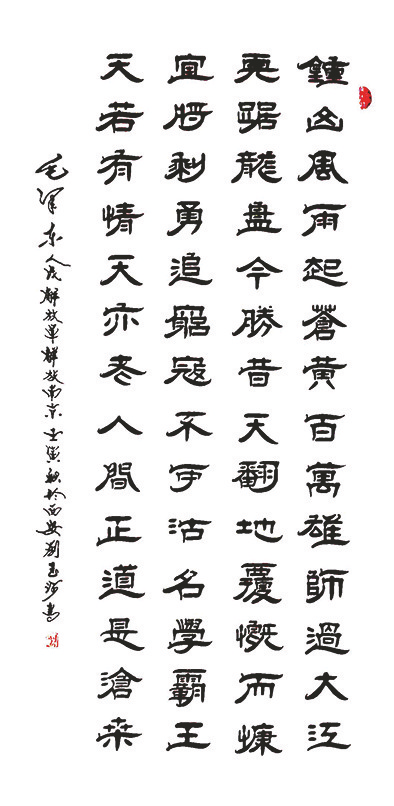 鍾山風雨起蒼黃百萬雄師過大江
虎踞龍盘今勝昔天翻地覆慨而慷
宜将剩勇追窮寇不可沽名學霸王
天若有情天亦老人間正道是滄桑
毛泽东人民解放军解放南京壬寅秋於西安劉玉書